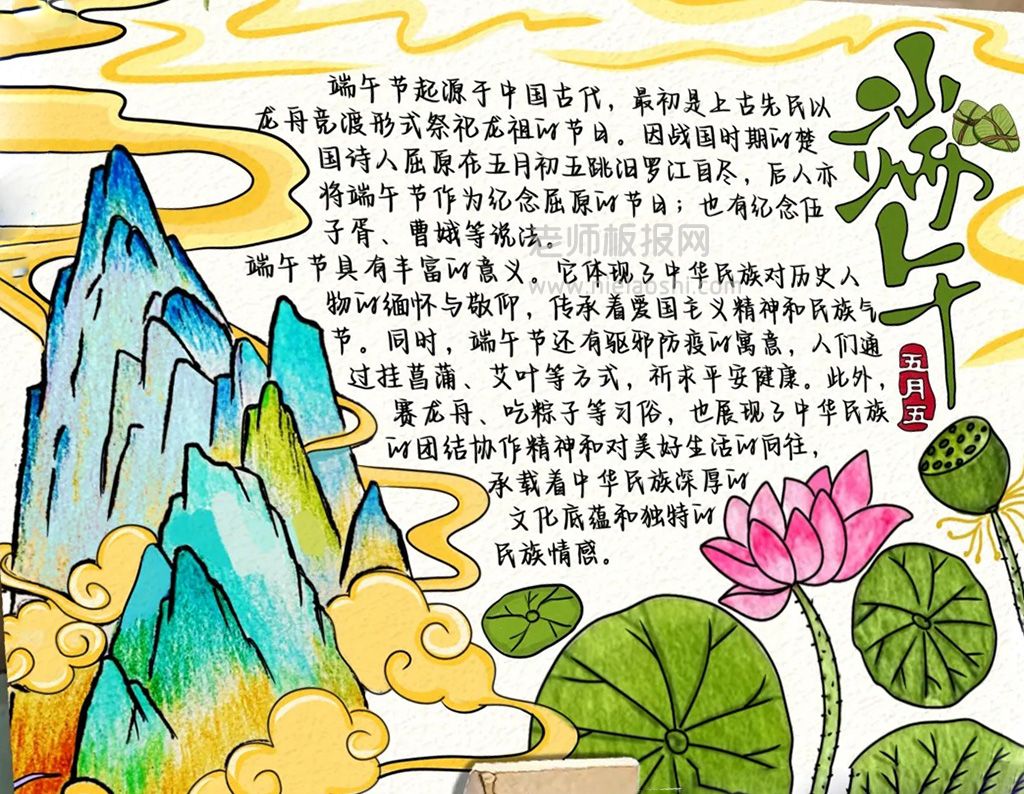 端午
五月五
端午节起源于中国古代，最初是上古先民以
龙舟竞渡形式祭祀龙祖的节日。因战国时期的楚
国诗人屈原在五月初五跳汨罗江自尽，后人亦
将端午节作为纪念屈原的节日；也有纪念伍
子胥、曹娥等说法。
老师板报网
端午节具有丰富的意义。它体现了中华民族对历史人
www.hielaoshi.com
物的缅怀与敬仰，传承着爱国主义精神和民族气
节。同时，端午节还有驱邪防疫的寓意，人们通
过挂菖蒲、艾叶等方式，祈求平安健康。此外，
赛龙舟、吃粽子等习俗，也展现了中华民族
的团结协作精神和对美好生活的向往，
承载着中华民族深厚的
文化底蕴和独特的
民族情感。